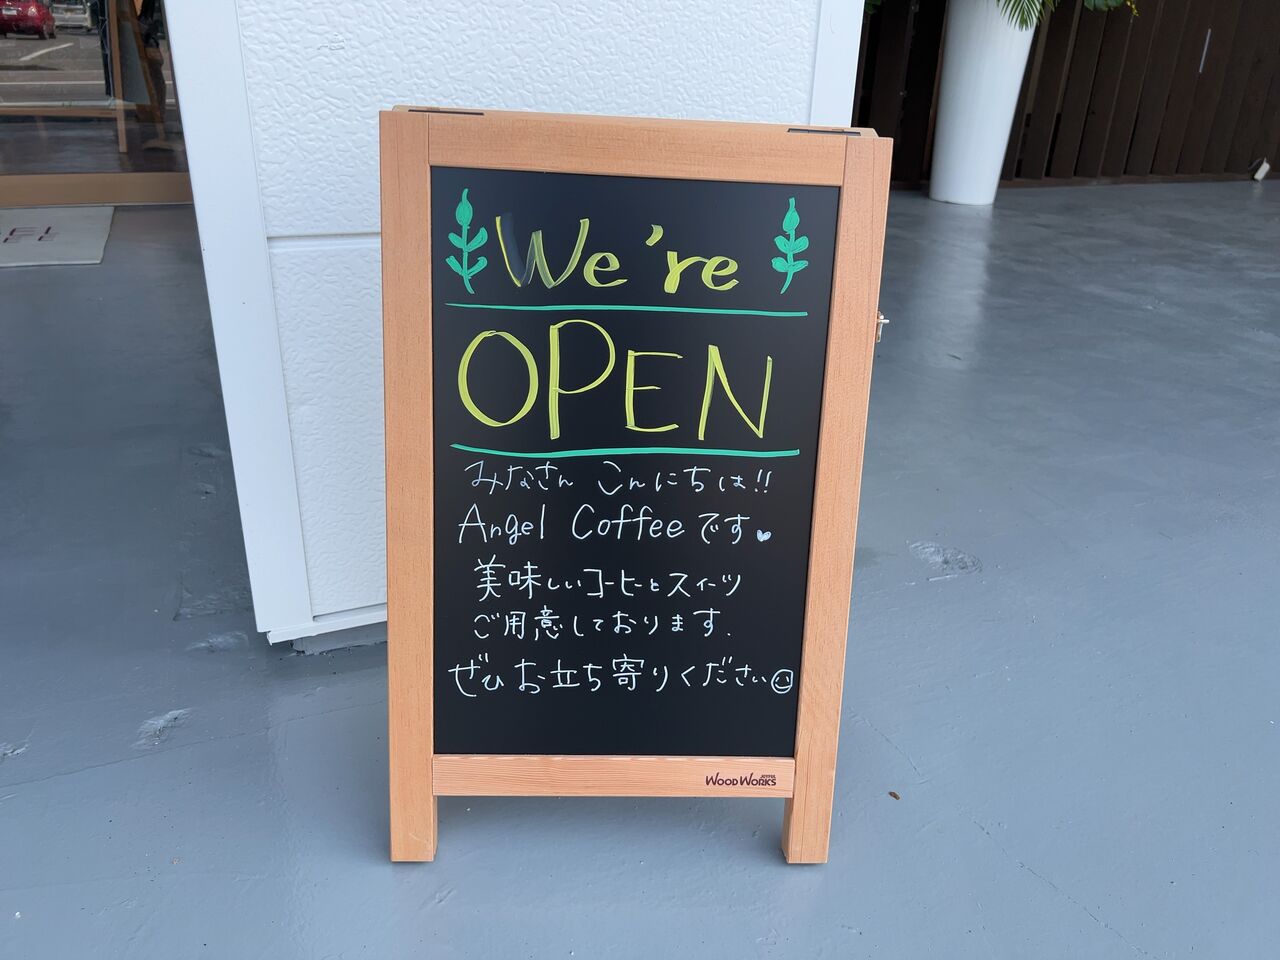 We're
OPEN
みなさん こんにちは!!
Angel Coffeeです♥
美味しいコーヒーとスイーツ
ご用意しております.
ぜひお立ち寄りください☺
JOYFUL
WOOD WORKS